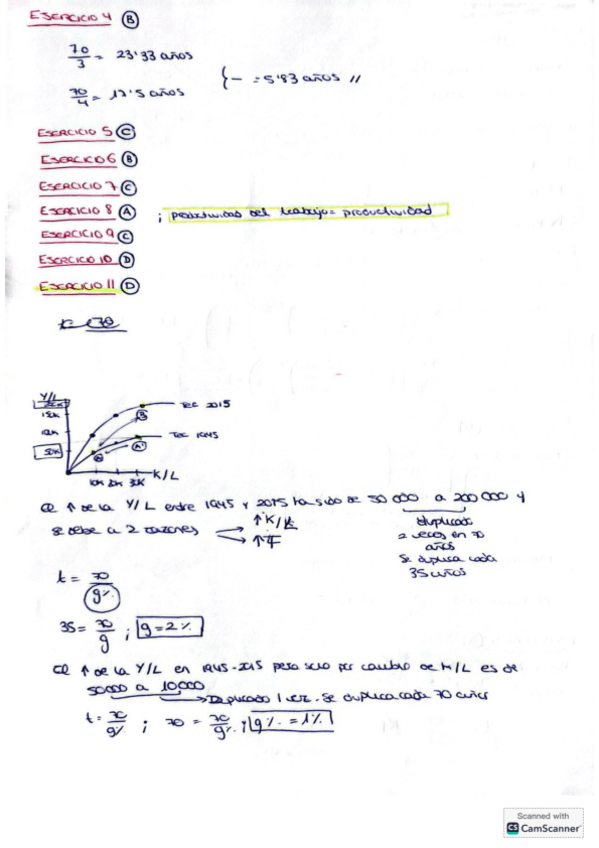 EJERCICIO 4 B
70/3 = 23'33 años
} - = 5'83 años //
70/4 = 17'5 años
EJERCICIO 5 C
EJERCICIO 6 B
EJERCICIO 7 C
EJERCICIO 8 A ; productividad del trabajo = productividad
EJERCICIO 9 C
EJERCICIO 10 D
EJERCICIO 11 D
Y/L
TEC 2015
B
TEC 1945
50K
A A'
10K 20K 30K K/L
El ↑ de la Y/L entre 1945 y 2015 ha sido de 50 000 a 200 000 y
se debe a 2 razones
↑ K/L
↑ T
duplicado
2 veces en 70
años
Se duplica cada
35 años
t = 70/g%
35 = 70/g ; g = 2%
El ↑ de la Y/L en 1945-2015 pero solo por cambio de K/L es de
50000 a 10000
Duplicado 1 vez. Se duplica cada 70 años
t = 70/g% ; 70 = 70/g% ; g% = 1%
Scanned with
CS CamScanner